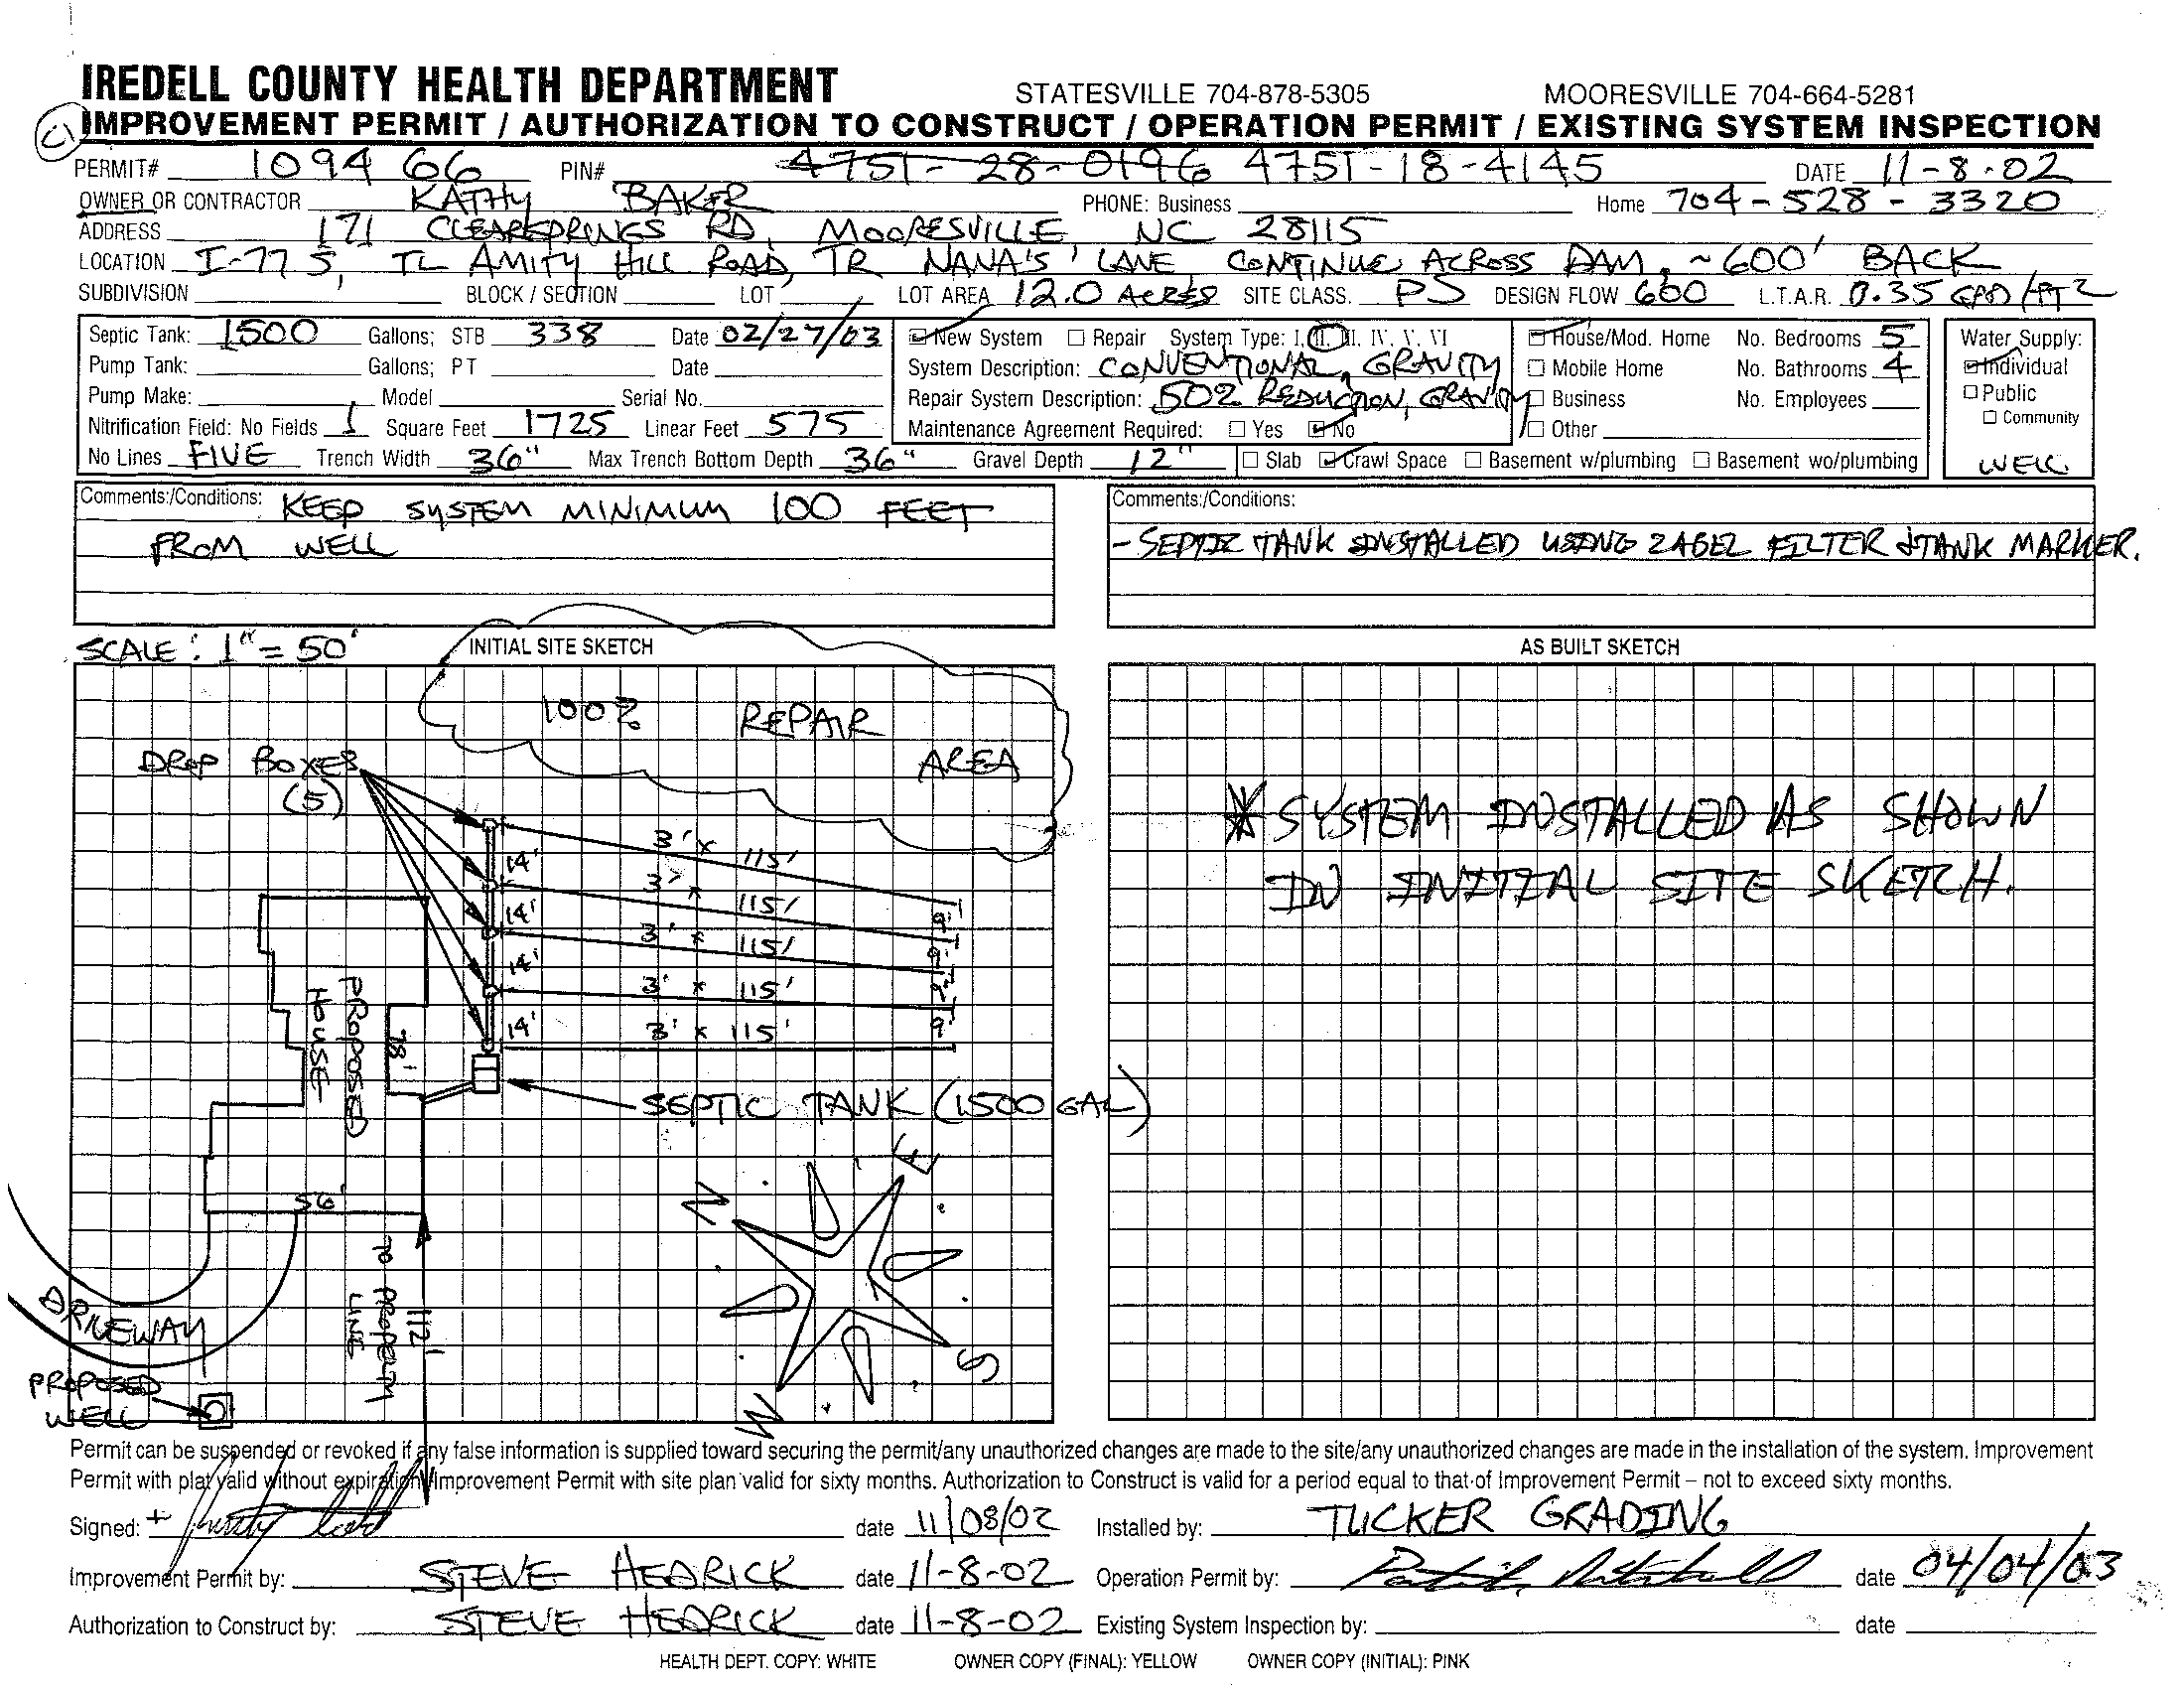 IREDELL COUNTY HEALTH DEPARTMENT STATESVILLE 704-878-5305 MOORESVILLE 704-664-5281
IMPROVEMENT PERMIT / AUTHORIZATION TO CONSTRUCT / OPERATION PERMIT / EXISTING SYSTEM INSPECTION
PERMIT# 109466 PIN# 4751-28-0196 4751-18-4145 DATE 11-8-02
OWNER OR CONTRACTOR KATHY BAKER PHONE: Business Home 704-528-3320
ADDRESS 171 CLEARSPRINGS RD, MOORESVILLE NC 28115
LOCATION I-77 S, TL AMITY HILL ROAD, TR NANA'S LANE, CONTINUE ACROSS DAM, ~600' BACK
SUBDIVISION BLOCK / SECTION LOT LOT AREA 12.0 ACRES SITE CLASS. PS DESIGN FLOW 600 L.T.A.R. 0.35 GPD/FT2
Septic Tank: 1500 Gallons; STB 338 Date 02/27/03 New System Repair System Type: I, II, III, IV, V, VI House/Mod. Home No. Bedrooms 5 Water Supply:
Pump Tank: Gallons; PT Date System Description: CONVENTIONAL, GRAVITY Mobile Home No. Bathrooms 4 Individual
Pump Make: Model Serial No. Repair System Description: 50% REDUCTION, GRAVITY Business No. Employees Public
Nitrification Field: No Fields 1 Square Feet 1725 Linear Feet 575 Maintenance Agreement Required: Yes No Other Community
No Lines FIVE Trench Width 36" Max Trench Bottom Depth 36" Gravel Depth 12" Slab Crawl Space Basement w/plumbing Basement wo/plumbing WELL
Comments:/Conditions: KEEP SYSTEM MINIMUM 100 FEET
FROM WELL
Comments:/Conditions:
- SEPTIC TANK INSTALLED USING ZABEL FILTER & TANK MARKER.
SCALE: 1" = 50' INITIAL SITE SKETCH
100% REPAIR
AREA
DROP BOXES
(5)
3' x 115'
14'
3' x 115'
9'
14'
3' x 115'
9'
14'
3' x 115'
9'
14'
3' x 115'
9'
PROPOSED
HOUSE
78'
SEPTIC TANK (1500 GAL)
56'
N
E
S
W
112'
TO PROPERTY
LINE
DRIVEWAY
PROPOSED
WELL
AS BUILT SKETCH
* SYSTEM INSTALLED AS SHOWN
IN INITIAL SITE SKETCH.
Permit can be suspended or revoked if any false information is supplied toward securing the permit/any unauthorized changes are made to the site/any unauthorized changes are made in the installation of the system. Improvement
Permit with plat valid without expiration/Improvement Permit with site plan valid for sixty months. Authorization to Construct is valid for a period equal to that of Improvement Permit – not to exceed sixty months.
Signed: date 11/08/02 Installed by: TUCKER GRADING
Improvement Permit by: STEVE HEDRICK date 11-8-02 Operation Permit by: date 04/04/03
Authorization to Construct by: STEVE HEDRICK date 11-8-02 Existing System Inspection by: date
HEALTH DEPT. COPY: WHITE OWNER COPY (FINAL): YELLOW OWNER COPY (INITIAL): PINK